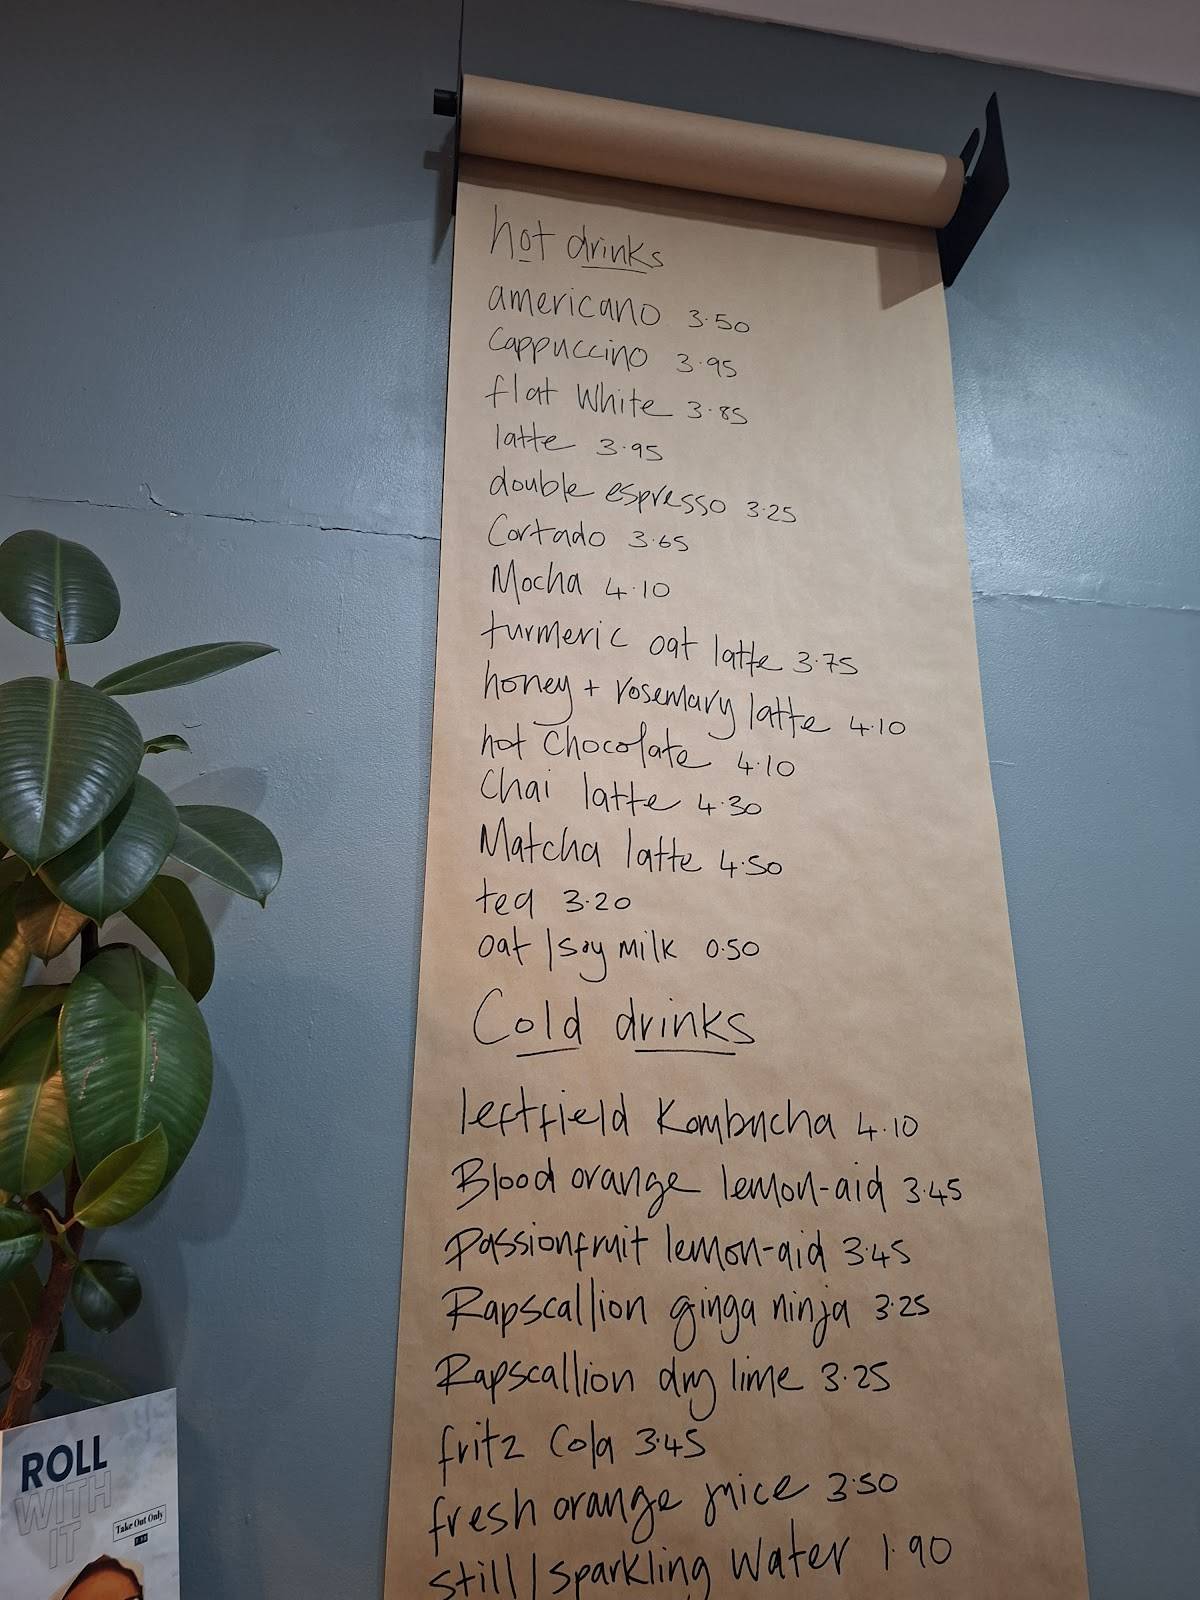 hot drinks
americano 3.50
Cappuccino 3.95
flat White 3.85
latte 3.95
double espresso 3.25
Cortado 3.65
Mocha 4.10
turmeric oat latte 3.75
honey + rosemary latte 4.10
hot Chocolate 4.10
Chai latte 4.30
Matcha latte 4.50
tea 3.20
oat / soy milk 0.50
Cold drinks
leftfield Kombucha 4.10
Blood orange lemon-aid 3.45
Passionfruit lemon-aid 3.45
Rapscallion ginga ninja 3.25
Rapscallion dry lime 3.25
fritz Cola 3.45
fresh orange juice 3.50
still / sparkling Water 1.90
ROLL
WITH
IT
Take Out Only